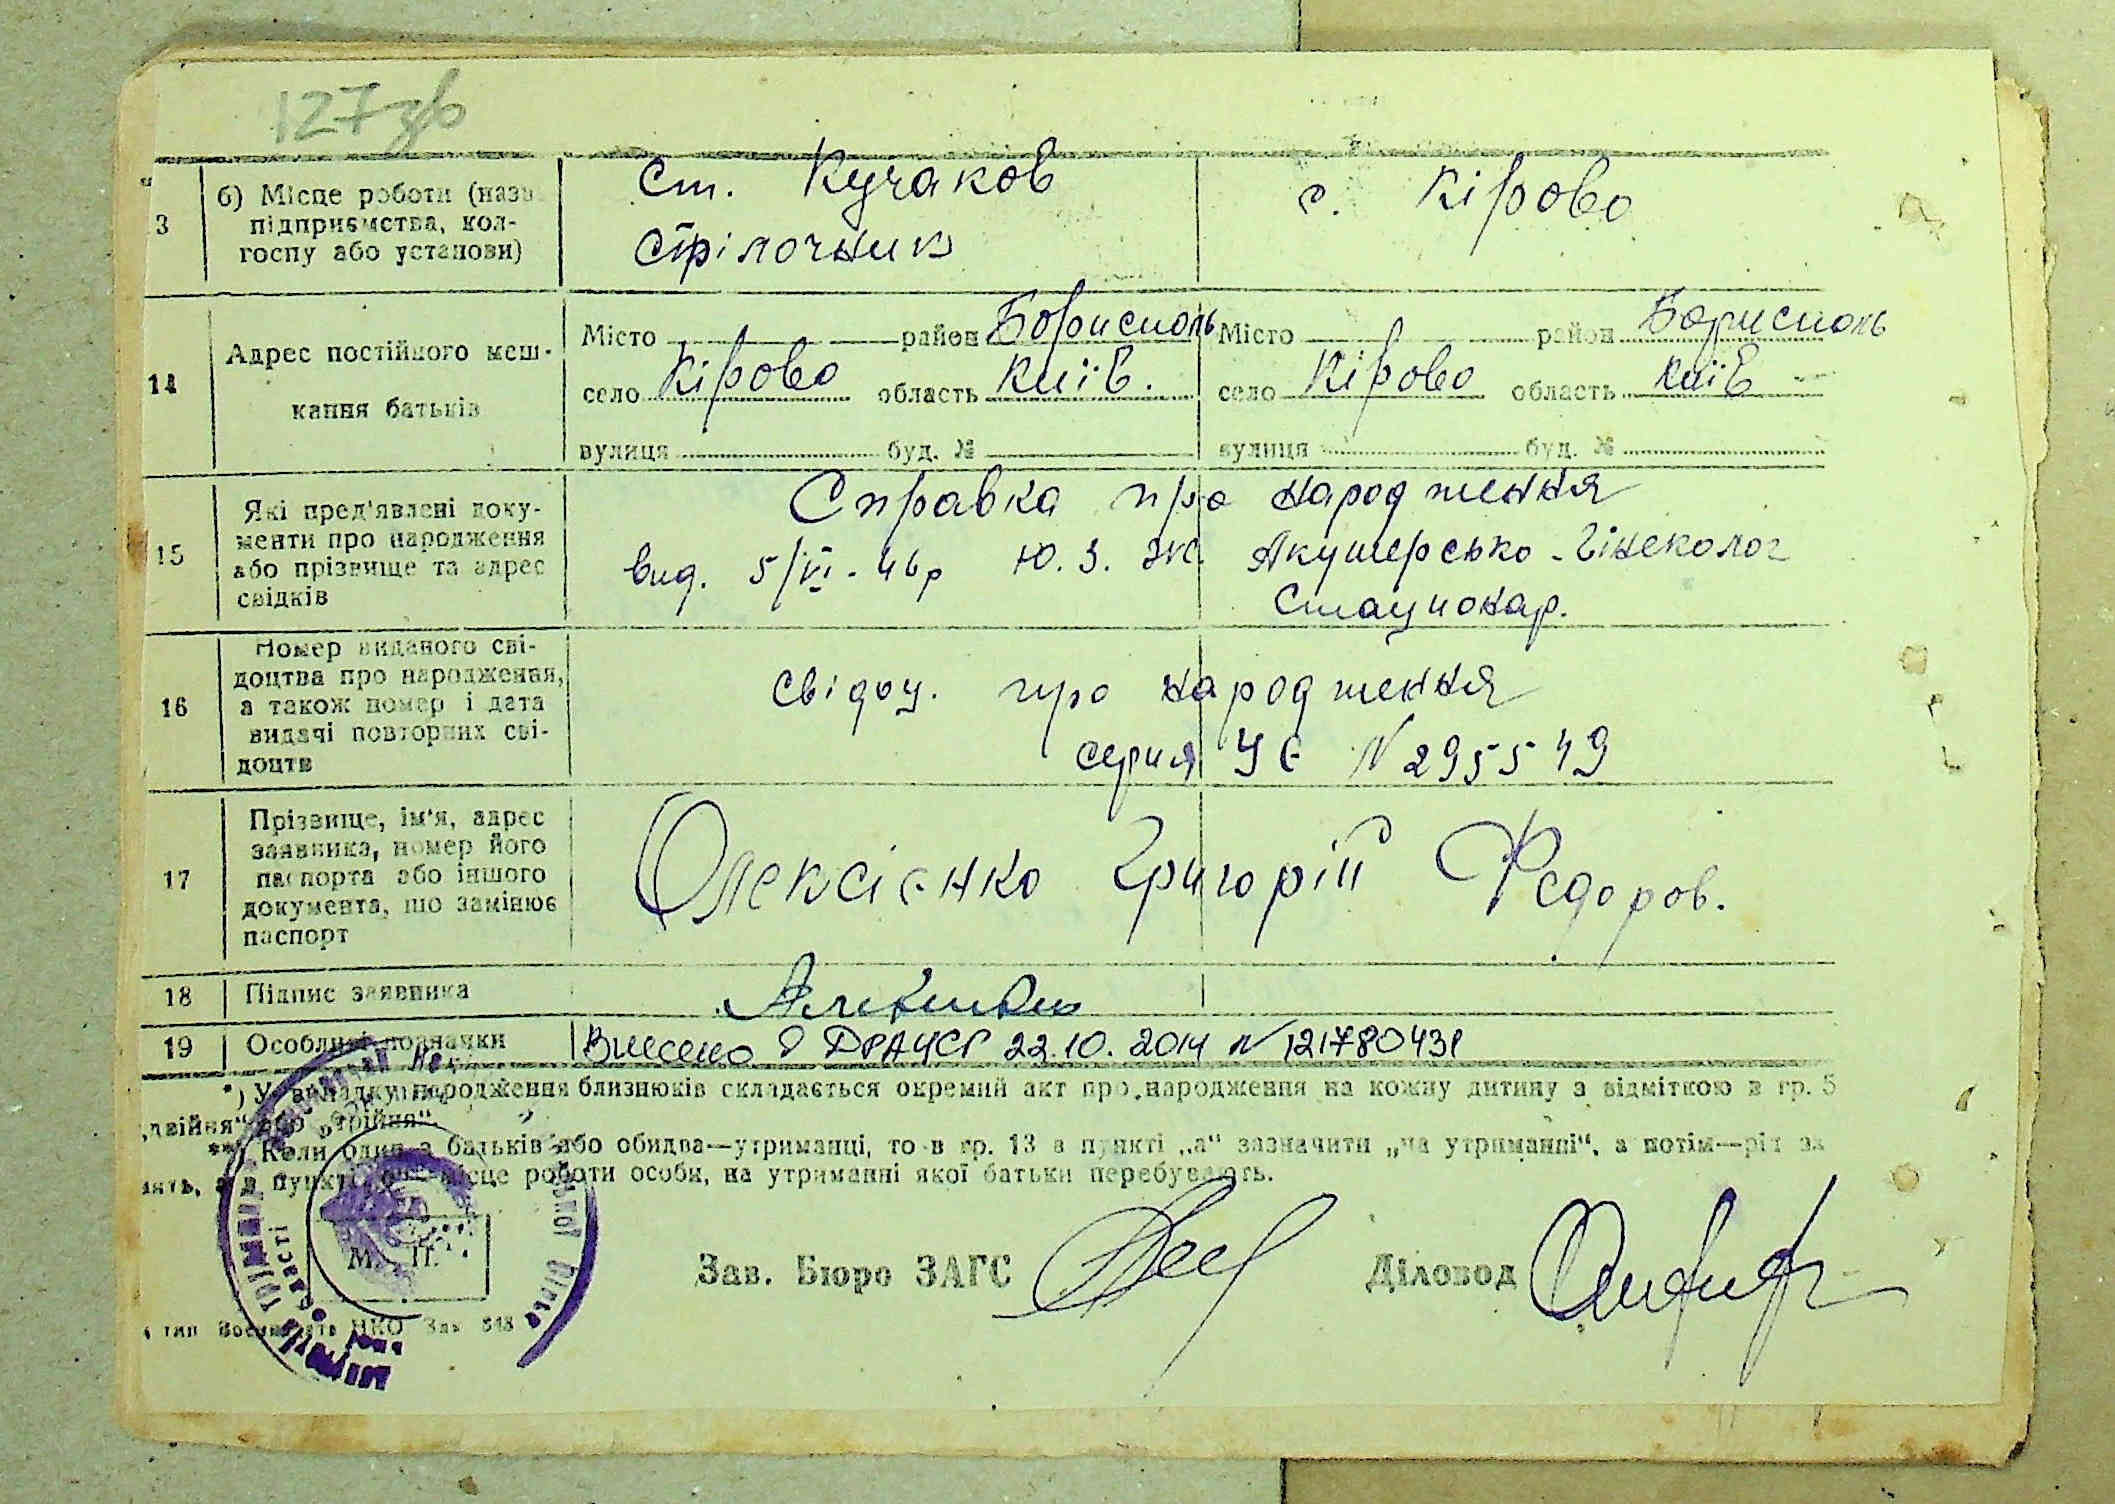 127 зв
3 б) Місце роботи (назв ст. Кучаков с. Кірово
підприємства, кол-
госпу або установи) стрілочник
14 Адрес постійного меш-
кання батьків
Місто район Бориспoль Місто район Бориспoль
село Кірово область Київ. село Кірово область Київ
вулиця буд. № вулиця буд. №
15 Які пред'явлені доку-
менти про народження
або прізвище та адрес
свідків
Справка про народження
вид. 5/VI-46р Ю. З. Ж. Акушерсько-Гінеколог
Стационар.
16 Номер виданого сві-
доцтва про народження,
а також номер і дата
видачі повторних сві-
доцтв
свідоц. про народження
серия УЄ N 295549
17 Прізвище, ім'я, адрес
заявника, номер його
паспорта або іншого
документа, що замінює
паспорт
Олексієнко Григорій Федоров.
18 Підпис заявника
19 Особливі позначки Внесено в ДРАЦСГ 22.10.2014 N 121780431
*) У випадку народження близнюків складається окремий акт про народження на кожну дитину з відміткою в гр. 5
„двійня“ або „трійня“.
**) Коли один з батьків або обидва—утриманці, то в гр. 13 в пункті „а“ зазначити „на утриманні“, а потім—рід за
нять, а в пункті місце роботи особи, на утриманні якої батьки перебувають.
М. П.
Зав. Бюро ЗАГС Діловод
тип НКО Зак 548